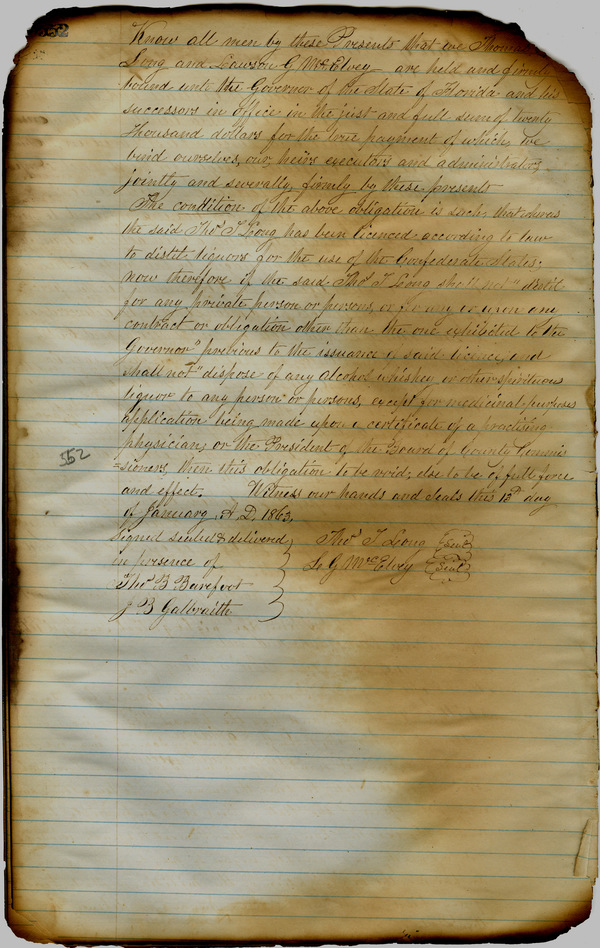 Know all men by these Presents that we Thomas
Long and Lawson G McElvey are held and firmly
bound unto the Governor of the State of Florida and his
successors in office in the just and full sum of twenty
thousand dollars for the true payment of which we
bind ourselves, our heirs executors and administrators
jointly and severally, firmly by these presents
The condition of the above obligation is such, that whereas
the said Thos T Long has been licenced according to law
to distil liquors for the use of the Confederate States;
now therefore if the said Thos T Long shall not "distil
for any private person or persons, or for any or upon any
contract or obligation other than the one exhibited to the
Governor" previous to the issuance of said licence, and
shall not "dispose of any alcohol whiskey or other spirituous
liquor to any person or persons, except for medicinal purposes
application being made upon a certificate of a practising
physician, or the President of the Board of County Commis
=sioners, then this obligation to be void; else to be of full force
and effect. Witness our hands and Seals this 13th day
of January A.D. 1863.
Signed sealed & delivered
in presence of
Thos B Barefoot
J B Galbraith
Thos T Long (Seal)
L G McElvey (Seal)
552